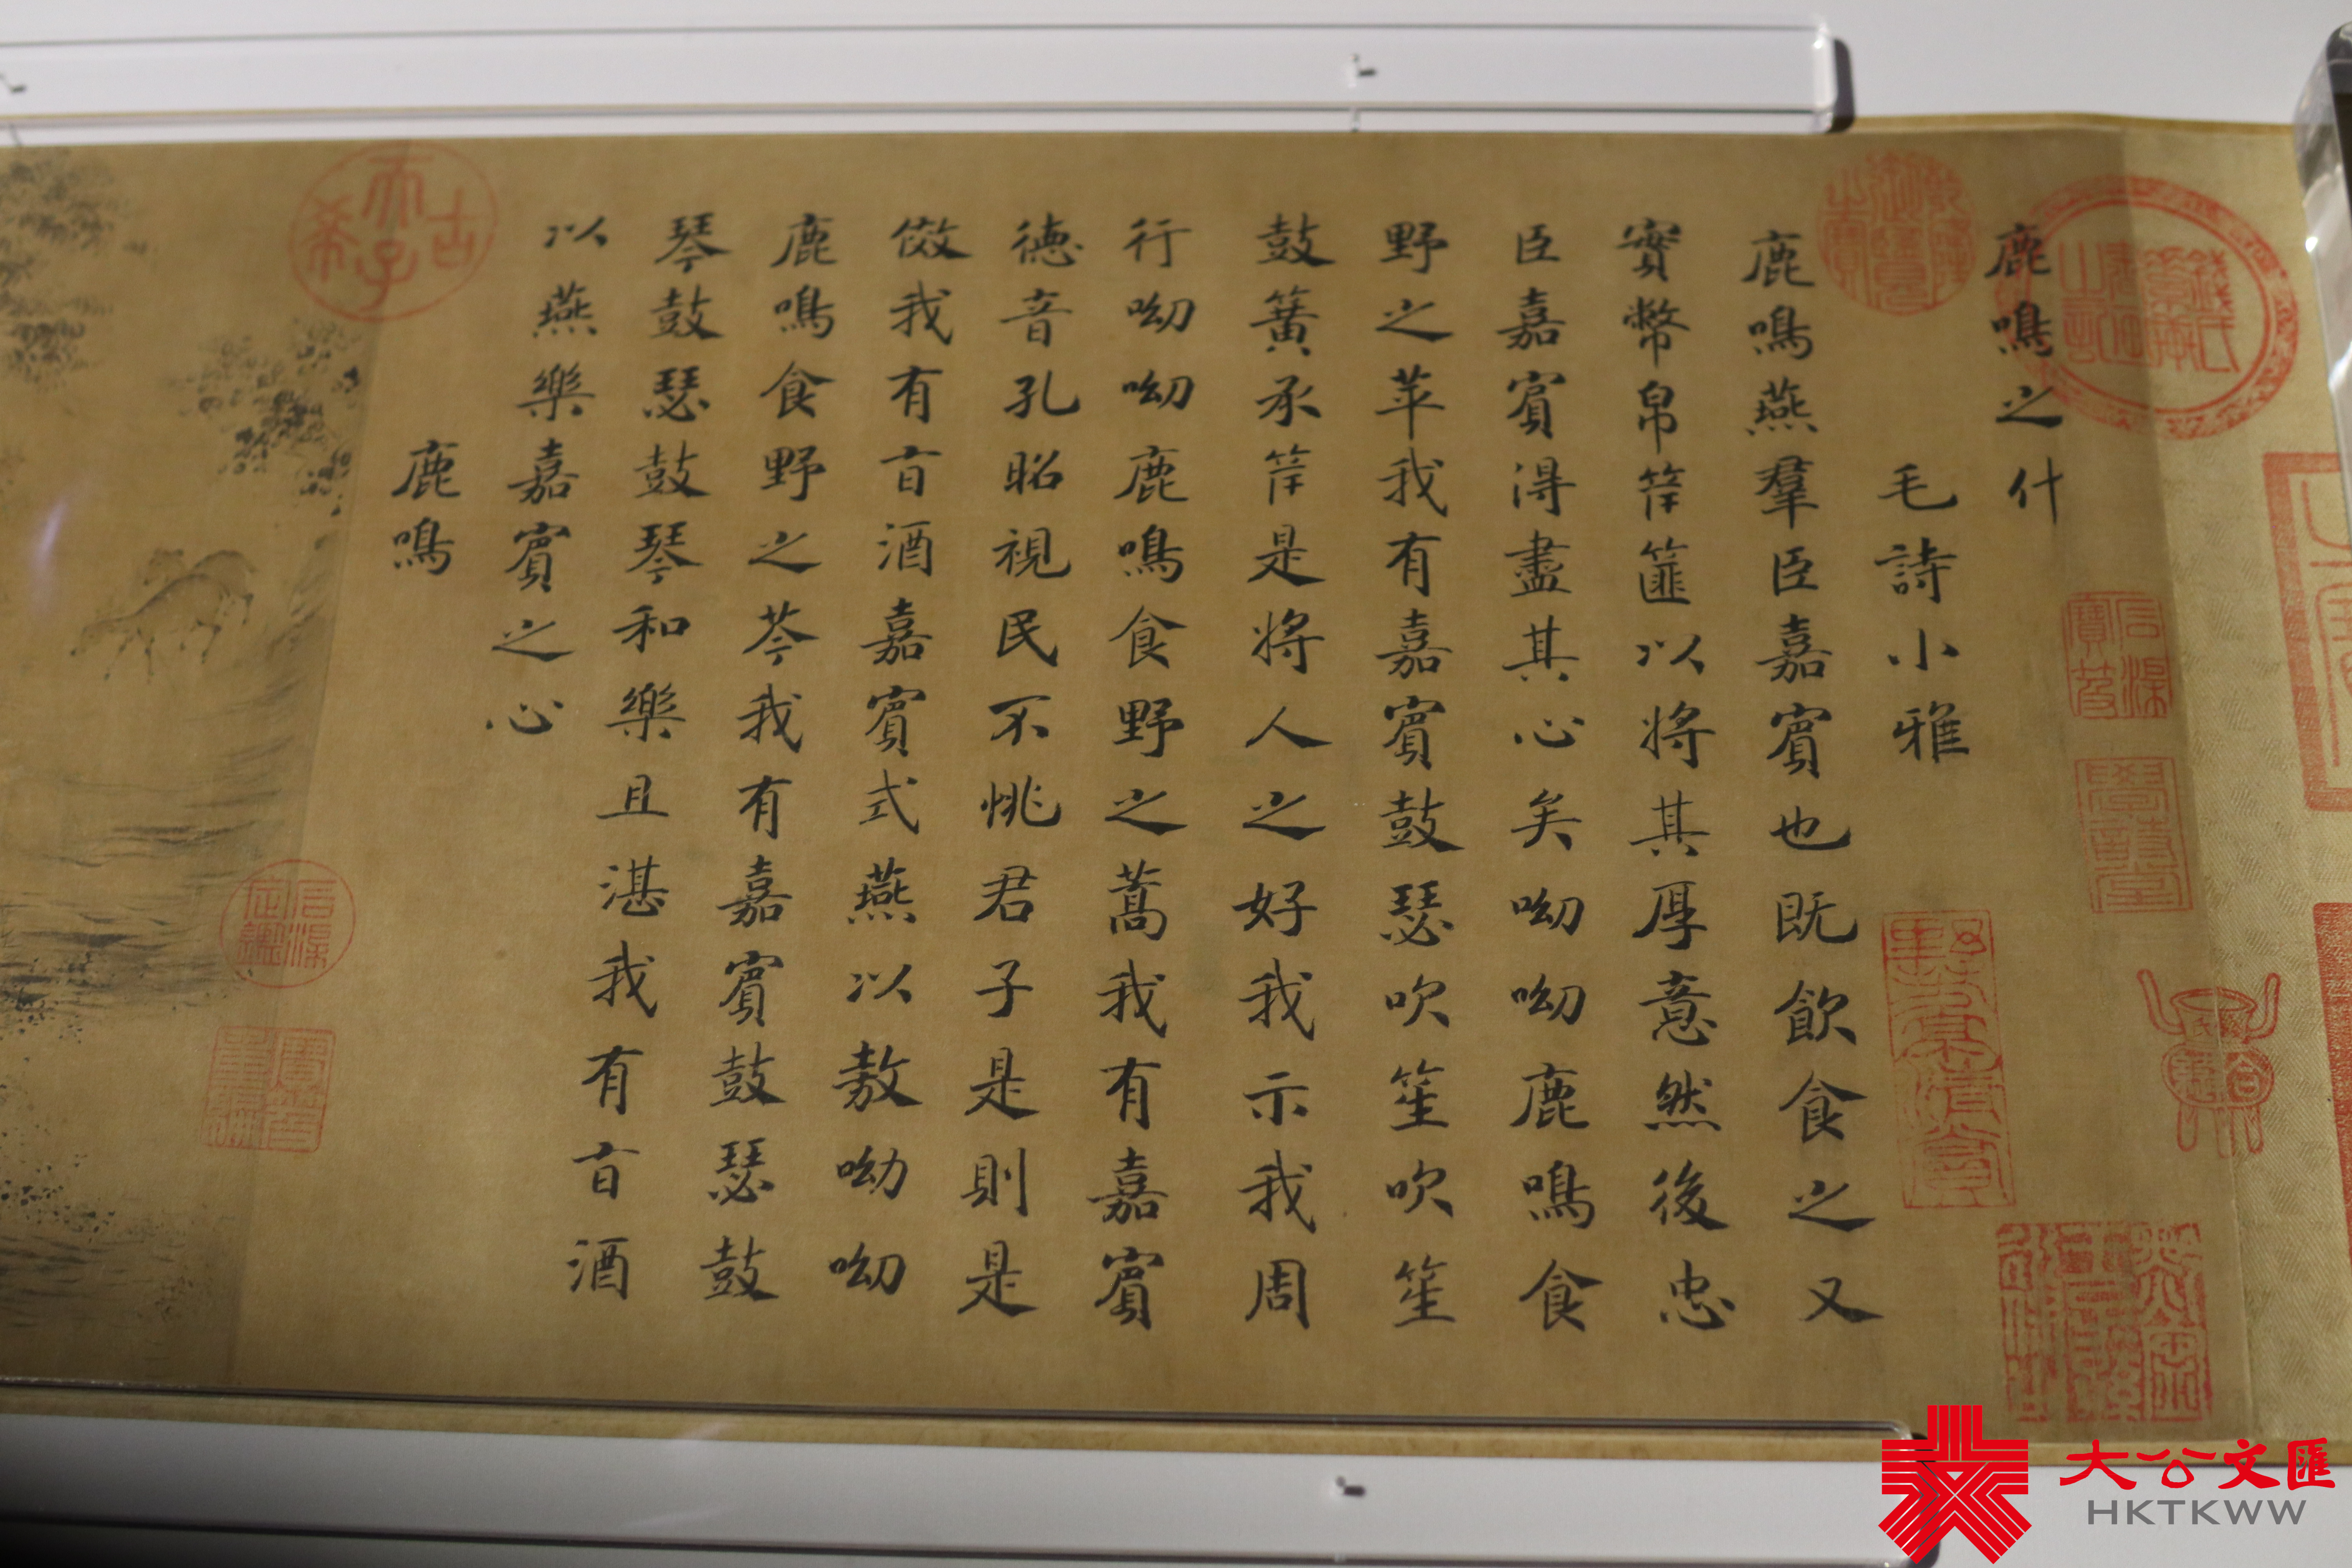 鹿鳴之什
毛詩小雅
鹿鳴燕羣臣嘉賓也既飲食之又
實幣帛筐篚以將其厚意然後忠
臣嘉賓得盡其心矣呦呦鹿鳴食
野之苹我有嘉賓鼓瑟吹笙吹笙
鼓簧承筐是將人之好我示我周
行呦呦鹿鳴食野之蒿我有嘉賓
德音孔昭視民不恌君子是則是
傚我有旨酒嘉賓式燕以敖呦呦
鹿鳴食野之芩我有嘉賓鼓瑟鼓
琴鼓瑟鼓琴和樂且湛我有旨酒
以燕樂嘉賓之心
鹿鳴
乾隆御覽之寶
石渠寶笈
學詩堂
古希天子
石渠定鑑
寶笈重編
大公文匯
HKTKWW